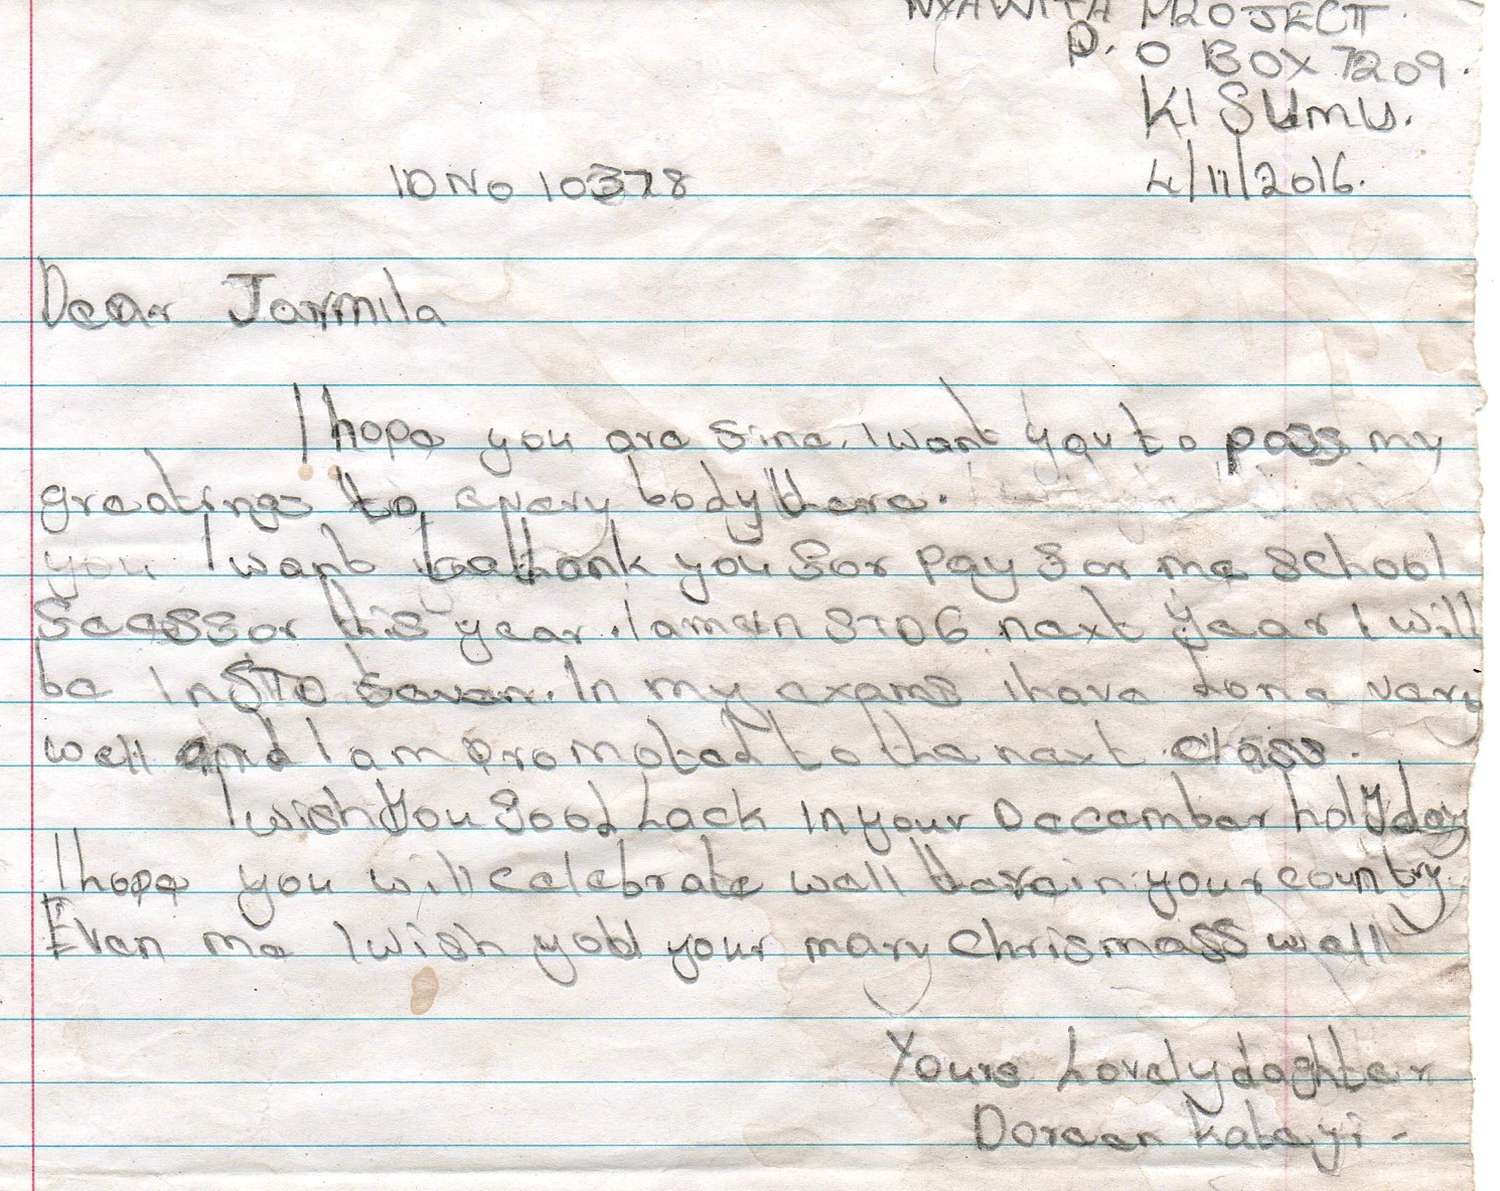 NYAWITA PROJECT.
P. O BOX 7209.
KISUMU.
4/11/2016.
ID No 10378
Dear Jarmila
I hope you are fine. I want you to pass my
greatings to every body there.
you I want to thank you for pay for me school
feess for this year. I am in STD 6 next year I will
be In STD seven. In my exams I have done very
well and I am promoted to the next class.
I wish you good Lack in your December holyday
I hope you will celebrate well there in your country.
Even me I wish you your mary chrismass well
Yours Lovely doghter
Doreen